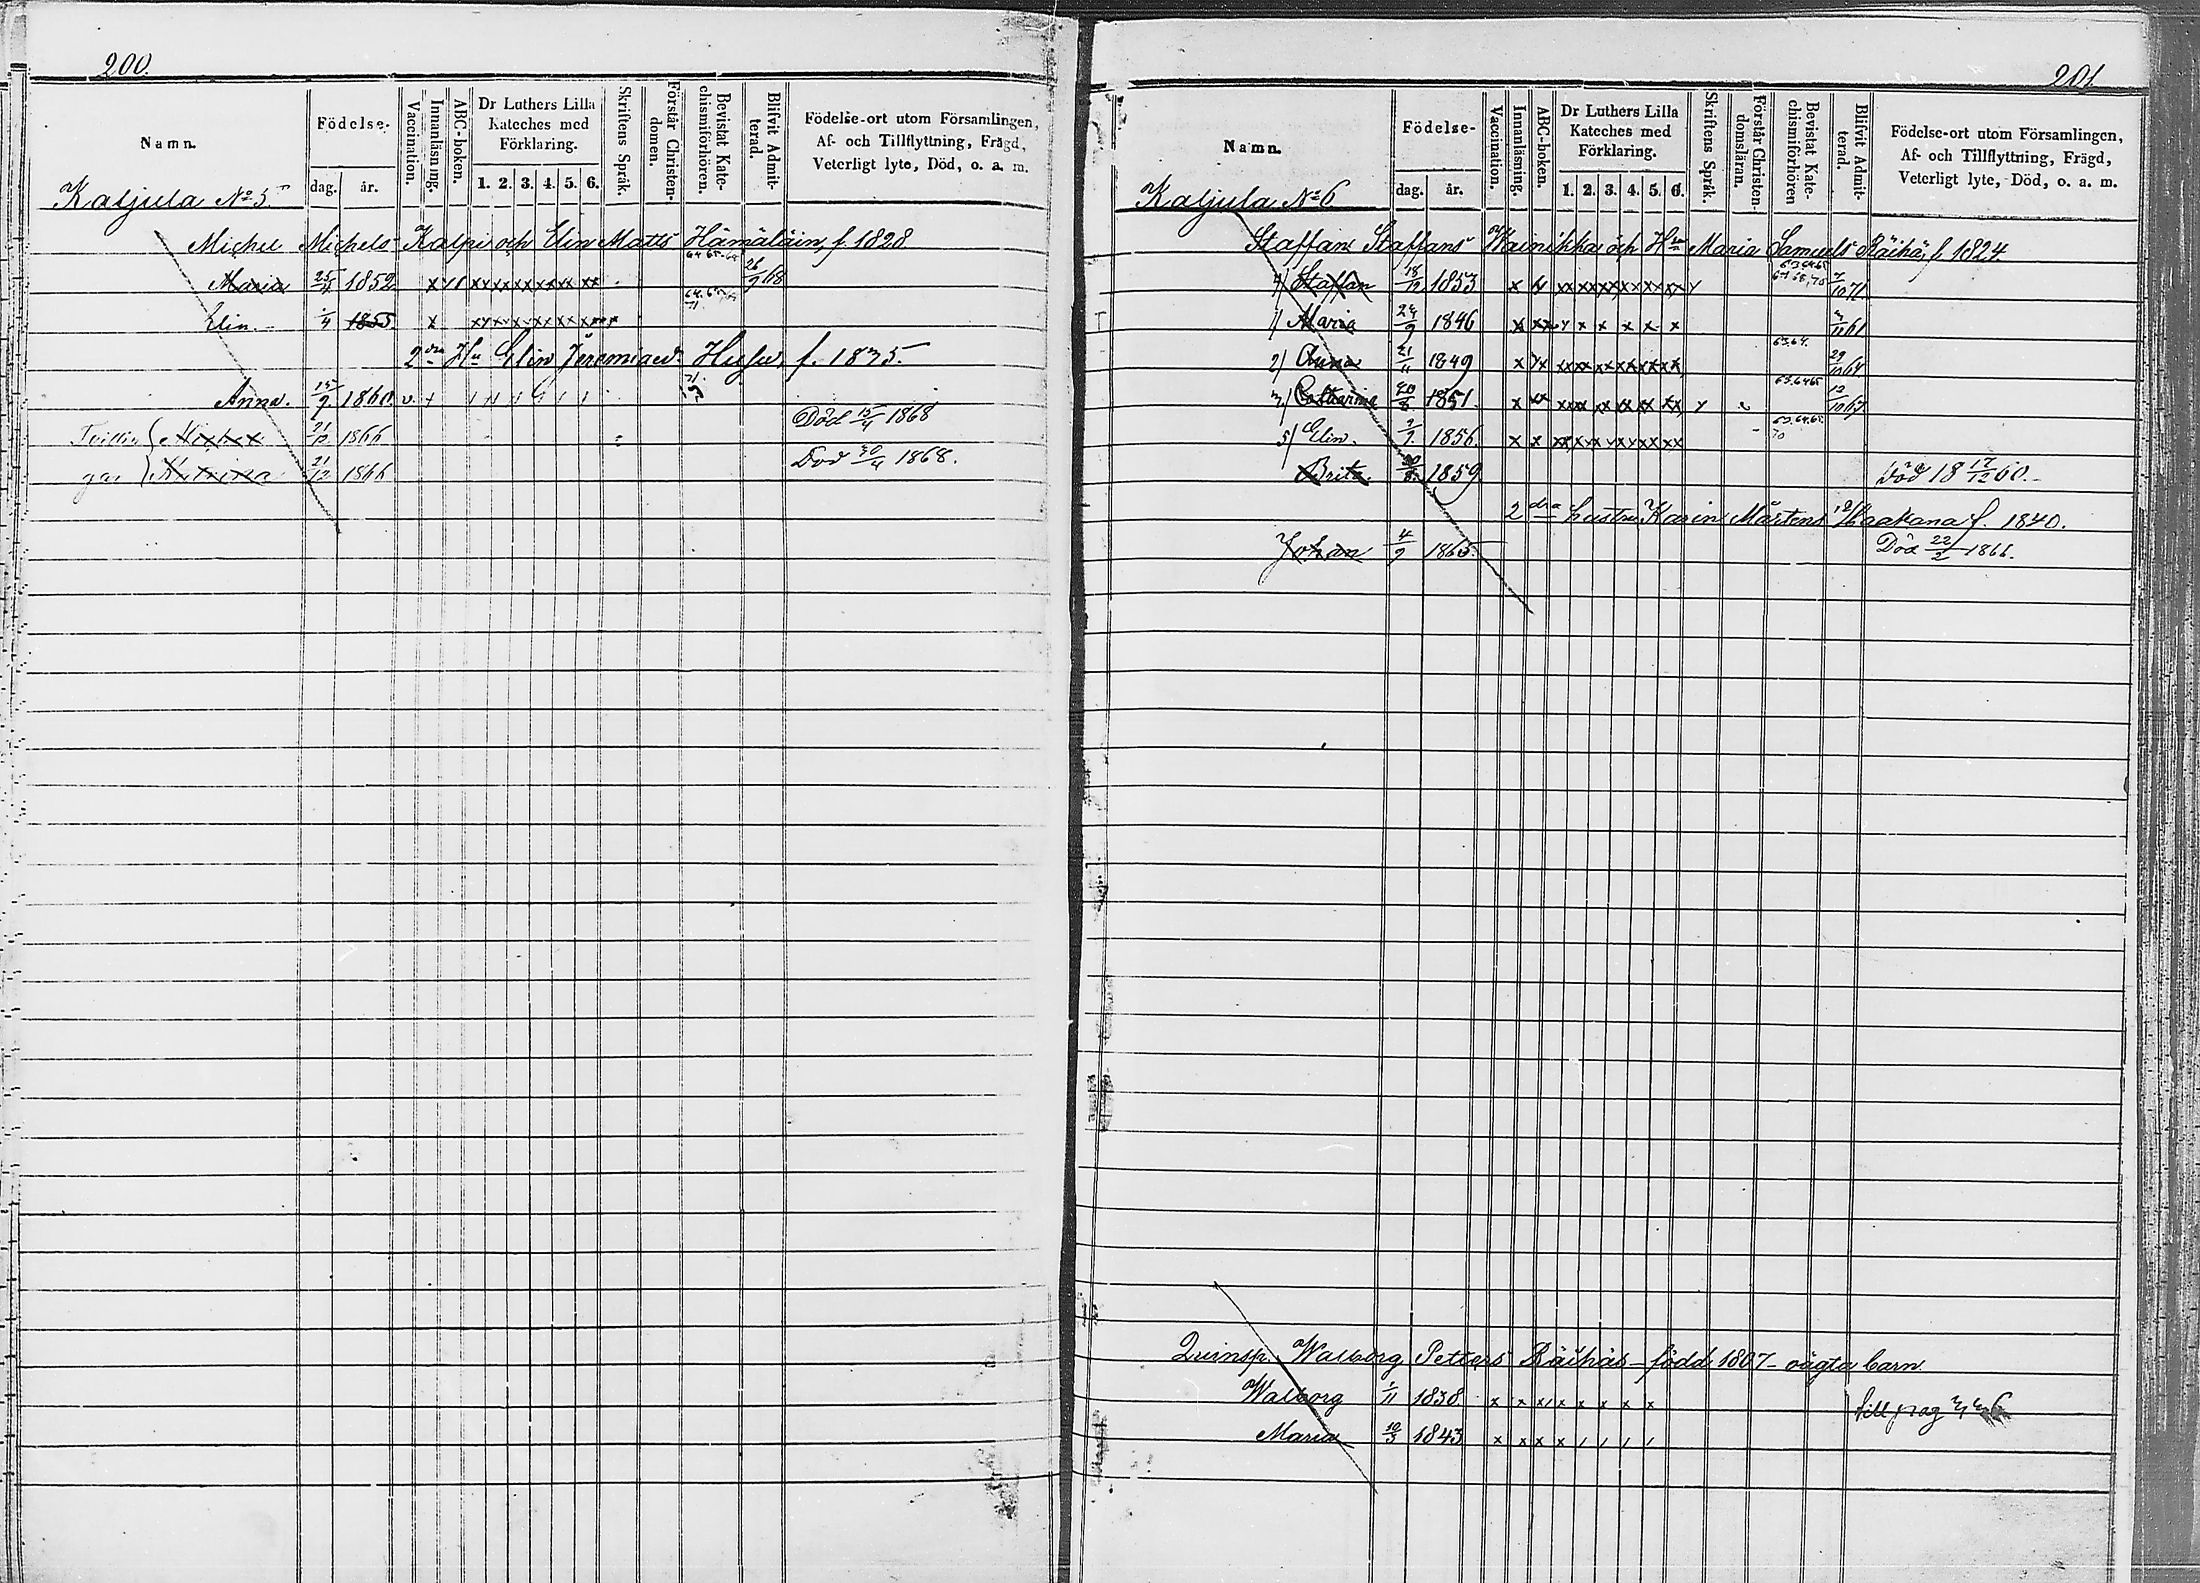 200.
Namn.
Födelse-
dag. år.
Vaccination.
Innanläsning.
ABC-boken.
Dr Luthers Lilla
Kateches med
Förklaring.
1. 2. 3. 4. 5. 6.
Skriftens Språk.
Förstår Christen-
domen.
Bevistat Kate-
chismiförhören.
Blifvit Admit-
terad.
Födelse-ort utom Församlingen,
Af- och Tillflyttning, Frägd,
Veterligt lyte, Död, o. a. m.
Kaljula No 5
Michel Michels Kalpi och Elin Matts Hämäläin, f. 1828
Maria 25/4 1852 x xx xx xx xx xx xx 26/9 68
Elin. 1/4 1855. x
2dra Hu Elin Jeremiaed. Huhu, f. 1835.
Anna. 15/9 1860. v. x
Tvillin Michel 21/12 1866 Död 15/4 1868
gar Katrina 21/12 1866 Död 30/4 1868.
201
Namn.
Födelse-
dag. år.
Vaccination.
Innanläsning.
ABC-boken.
Dr Luthers Lilla
Kateches med
Förklaring.
1. 2. 3. 4. 5. 6.
Skriftens Språk.
Förstår Christen-
domsläran.
Bevistat Kate-
chismiförhören
Blifvit Admit-
terad.
Födelse-ort utom Församlingen,
Af- och Tillflyttning, Frägd,
Veterligt lyte, Död, o. a. m.
Kaljula No 6
Staffan Staffans Wainikka och Hu Maria Samuels Räihä, f. 1824
4) Staffan 18/12 1853 7/10 71.
1) Maria 24/9 1846 x xx x x x x x x 3/11 61
2) Anna 21/11 1849 63.64. 29/10 64
3) Catharina 20/8 1851. 63.64.65 12/10 67
5) Elin. 1856. x x 63.64.65. 70
Brita. 20/8 1859 Död 18 17/12 60.
2dra hustru Karin Mårtens Haakana f. 1840.
Johan 4/9 1865. Död 22/2 1866.
Qvinsp. Walborg Petters Räihäs - född 1807 - oägta barn
Walborg 1/11 1838. x x x x x x x x
Maria 10/3 1843 x x x x
till pag